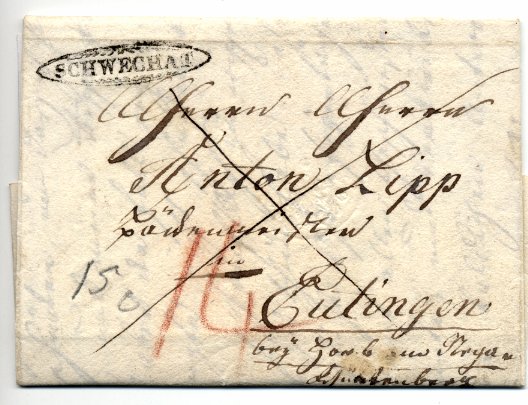 SCHWECHAT
Herrn Herrn
Anton Lipp
in
Eutingen
bey Horb am
15
14